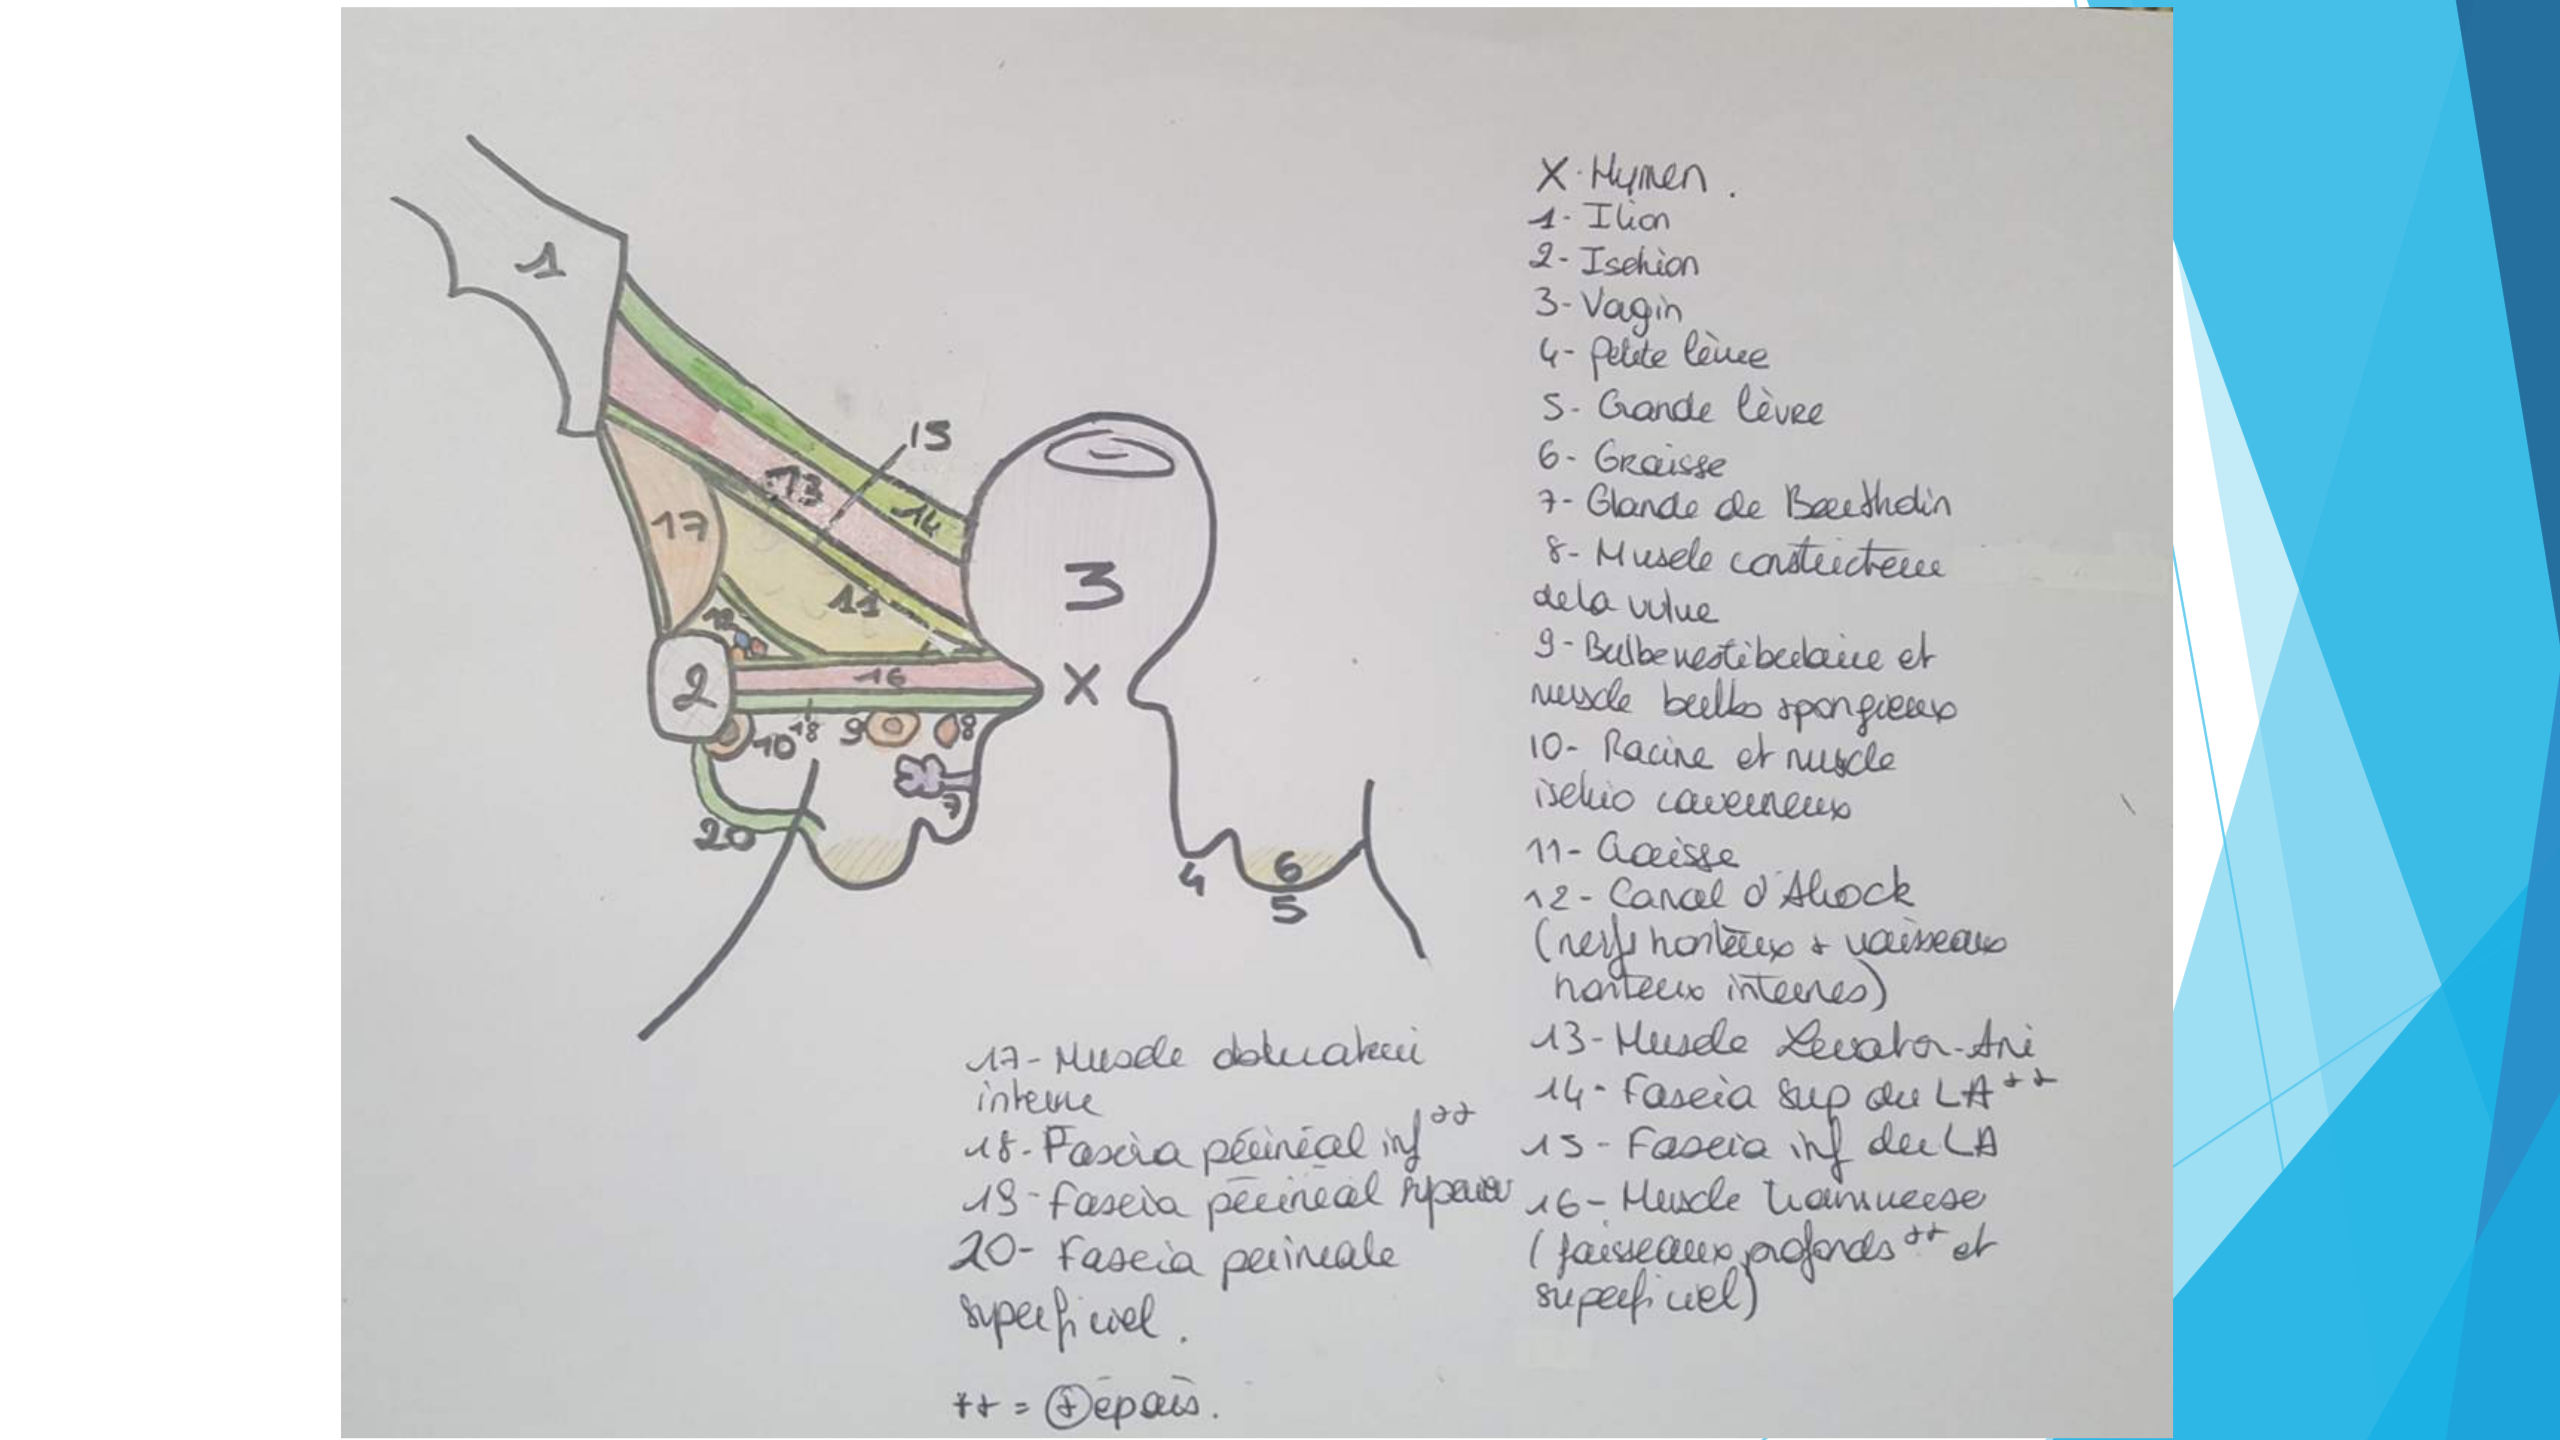 X - Hymen.
1 - Ilion
2 - Ischion
3 - Vagin
4 - Petite lèvre
5 - Grande lèvre
6 - Graisse
7 - Glande de Bartholin
8 - Muscle constricteur
de la vulve
9 - Bulbe vestibulaire et
muscle bulbo spongieux
10 - Racine et muscle
ischio caverneux
11 - Graisse
12 - Canal d'Alcock
(nerfs honteux + vaisseaux
honteux internes)
13 - Muscle Levator-Ani
14 - Fascia sup du LA ++
15 - Fascia inf du LA
16 - Muscle transverse
(faisceaux profonds ++ et
superficiel)
17 - Muscle obturateur
interne
18 - Fascia périnéal inf ++
19 - Fascia périnéal
20 - Fascia perineale
superficiel.
++ = + épais.
1
15
13
14
17
3
11
12
16
X
2
18
9
8
10
7
20
4
6
5